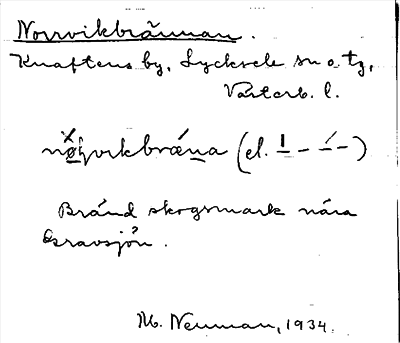 Norrvikbrännan.
Knaftens by, Lycksele sn o. tg,
Västerb. l.
(el. – –)
Bränd skogsmark nära
Gravsjön.
M. Neuman, 1934.